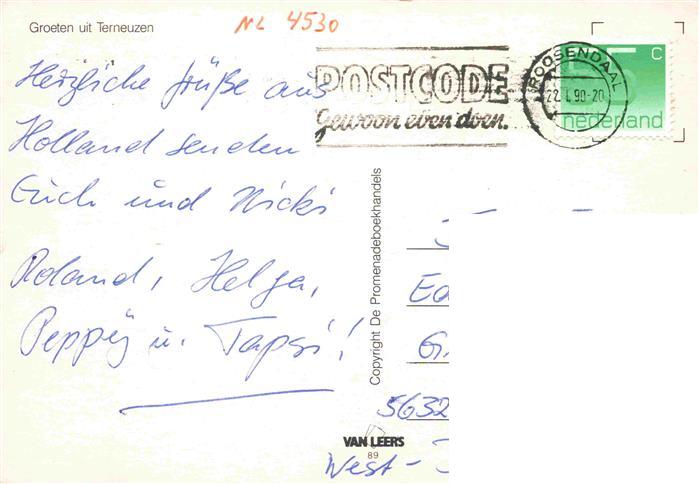 Groeten uit Terneuzen
NL 4530
POSTCODE
Gewoon even doen.
ROOSENDAAL
22. 90-20
c
nederland
Herzliche Grüße aus
Holland senden
Euch und Nicki
Roland, Helga,
Peppy u. Tapsi!
Copyright De Promenadeboekhandels
Ed
G
5632
West-
VAN LEERS
89